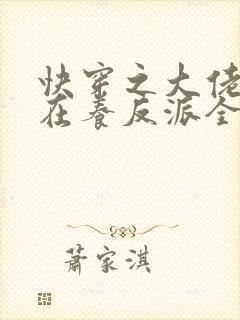 快穿之大佬
在养反派全
蕭家淇